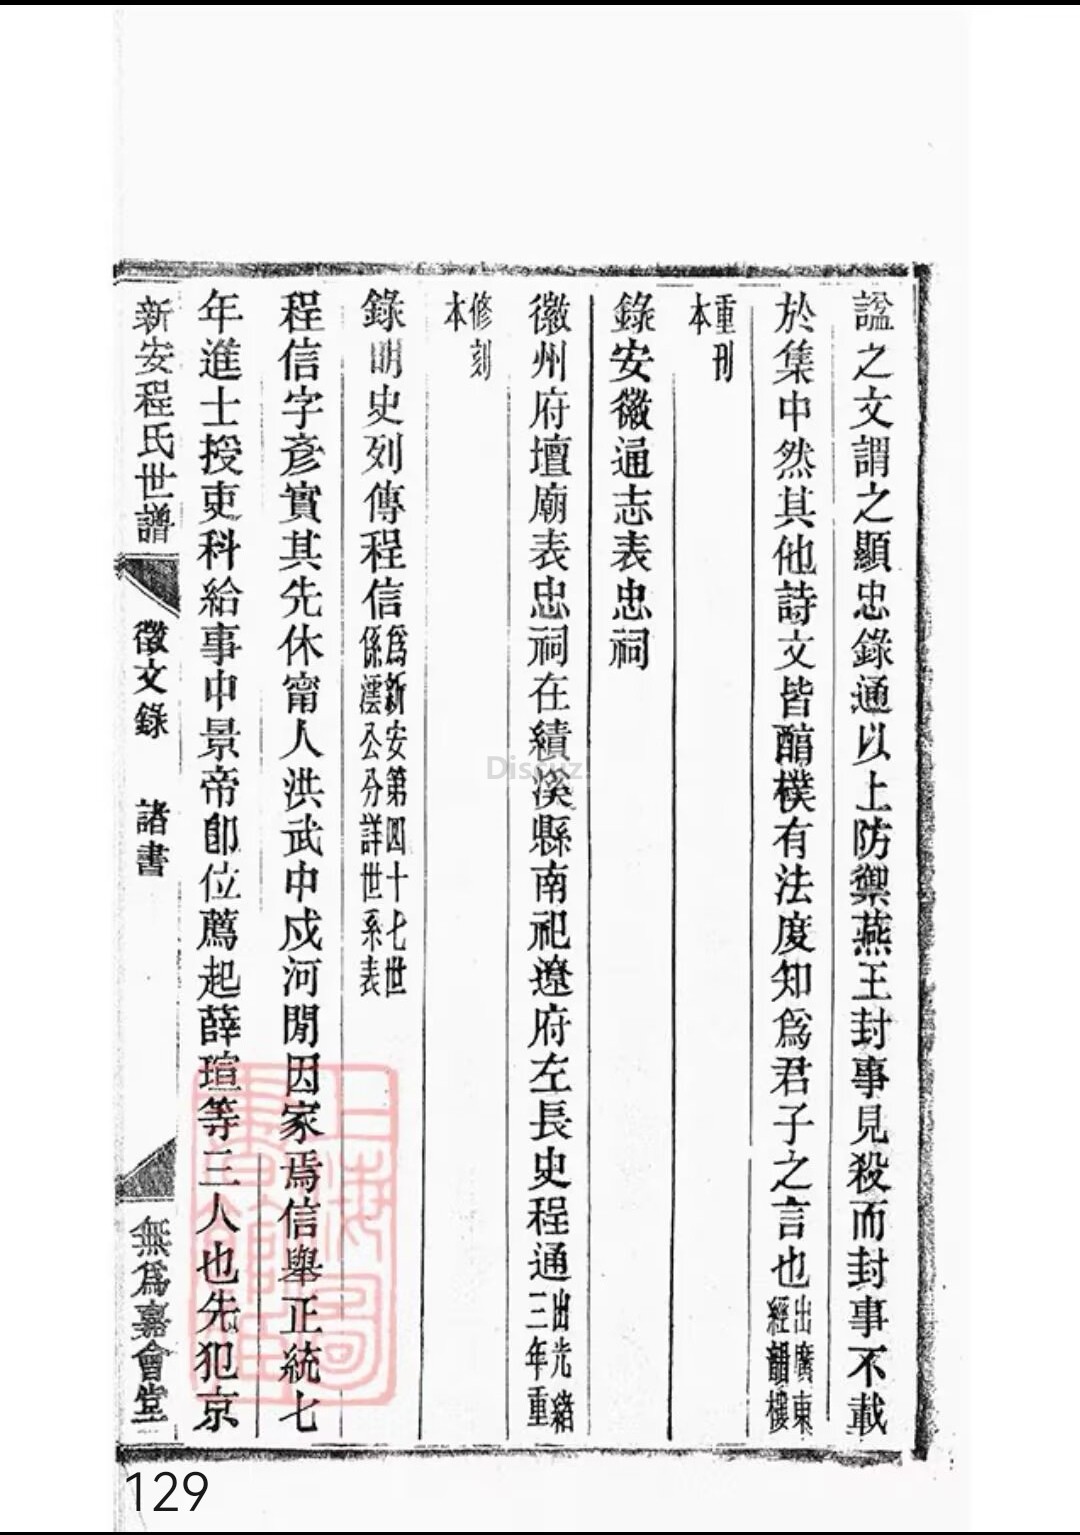 謚之文謂之顯忠錄通以上防禦燕王封事見殺而封事不載
於集中然其他詩文皆醇樸有法度知爲君子之言也出廣東經韻樓
重刊本
錄安徽通志表忠祠
徽州府壇廟表忠祠在績溪縣南祀遼府左長史程通出光緒三年重
修刻本
錄明史列傳程信爲新安第四十七世係澐公分詳世系表
程信字彥實其先休甯人洪武中戍河閒因家焉信舉正統七
年進士授吏科給事中景帝卽位薦起薛瑄等三人也先犯京
新安程氏世譜 徵文錄 諸書 無爲嘉會堂
上海圖書館藏
Discuz!
129